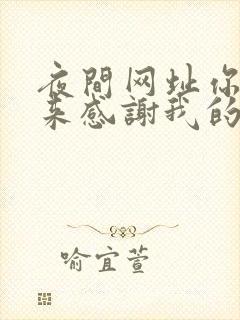 夜間网址你
来感謝我的
喻宜萱